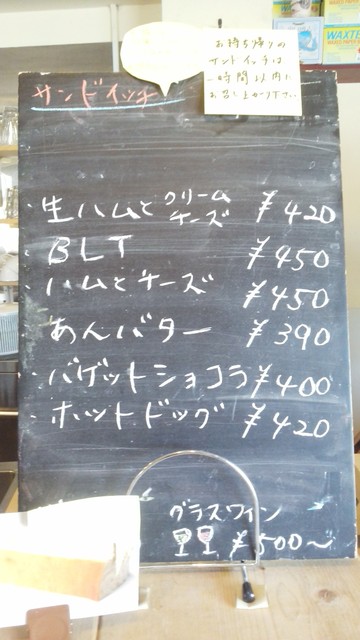 お持ち帰りの
サンドイッチは
一時間以内に
お召し上がり下さい
サンドイッチ
・生ハムとクリームチーズ ¥420
・BLT ¥450
・ハムとチーズ ¥450
・あんバター ¥390
・バゲットショコラ ¥400
・ホットドッグ ¥420
グラスワイン
¥500〜
WAXTE